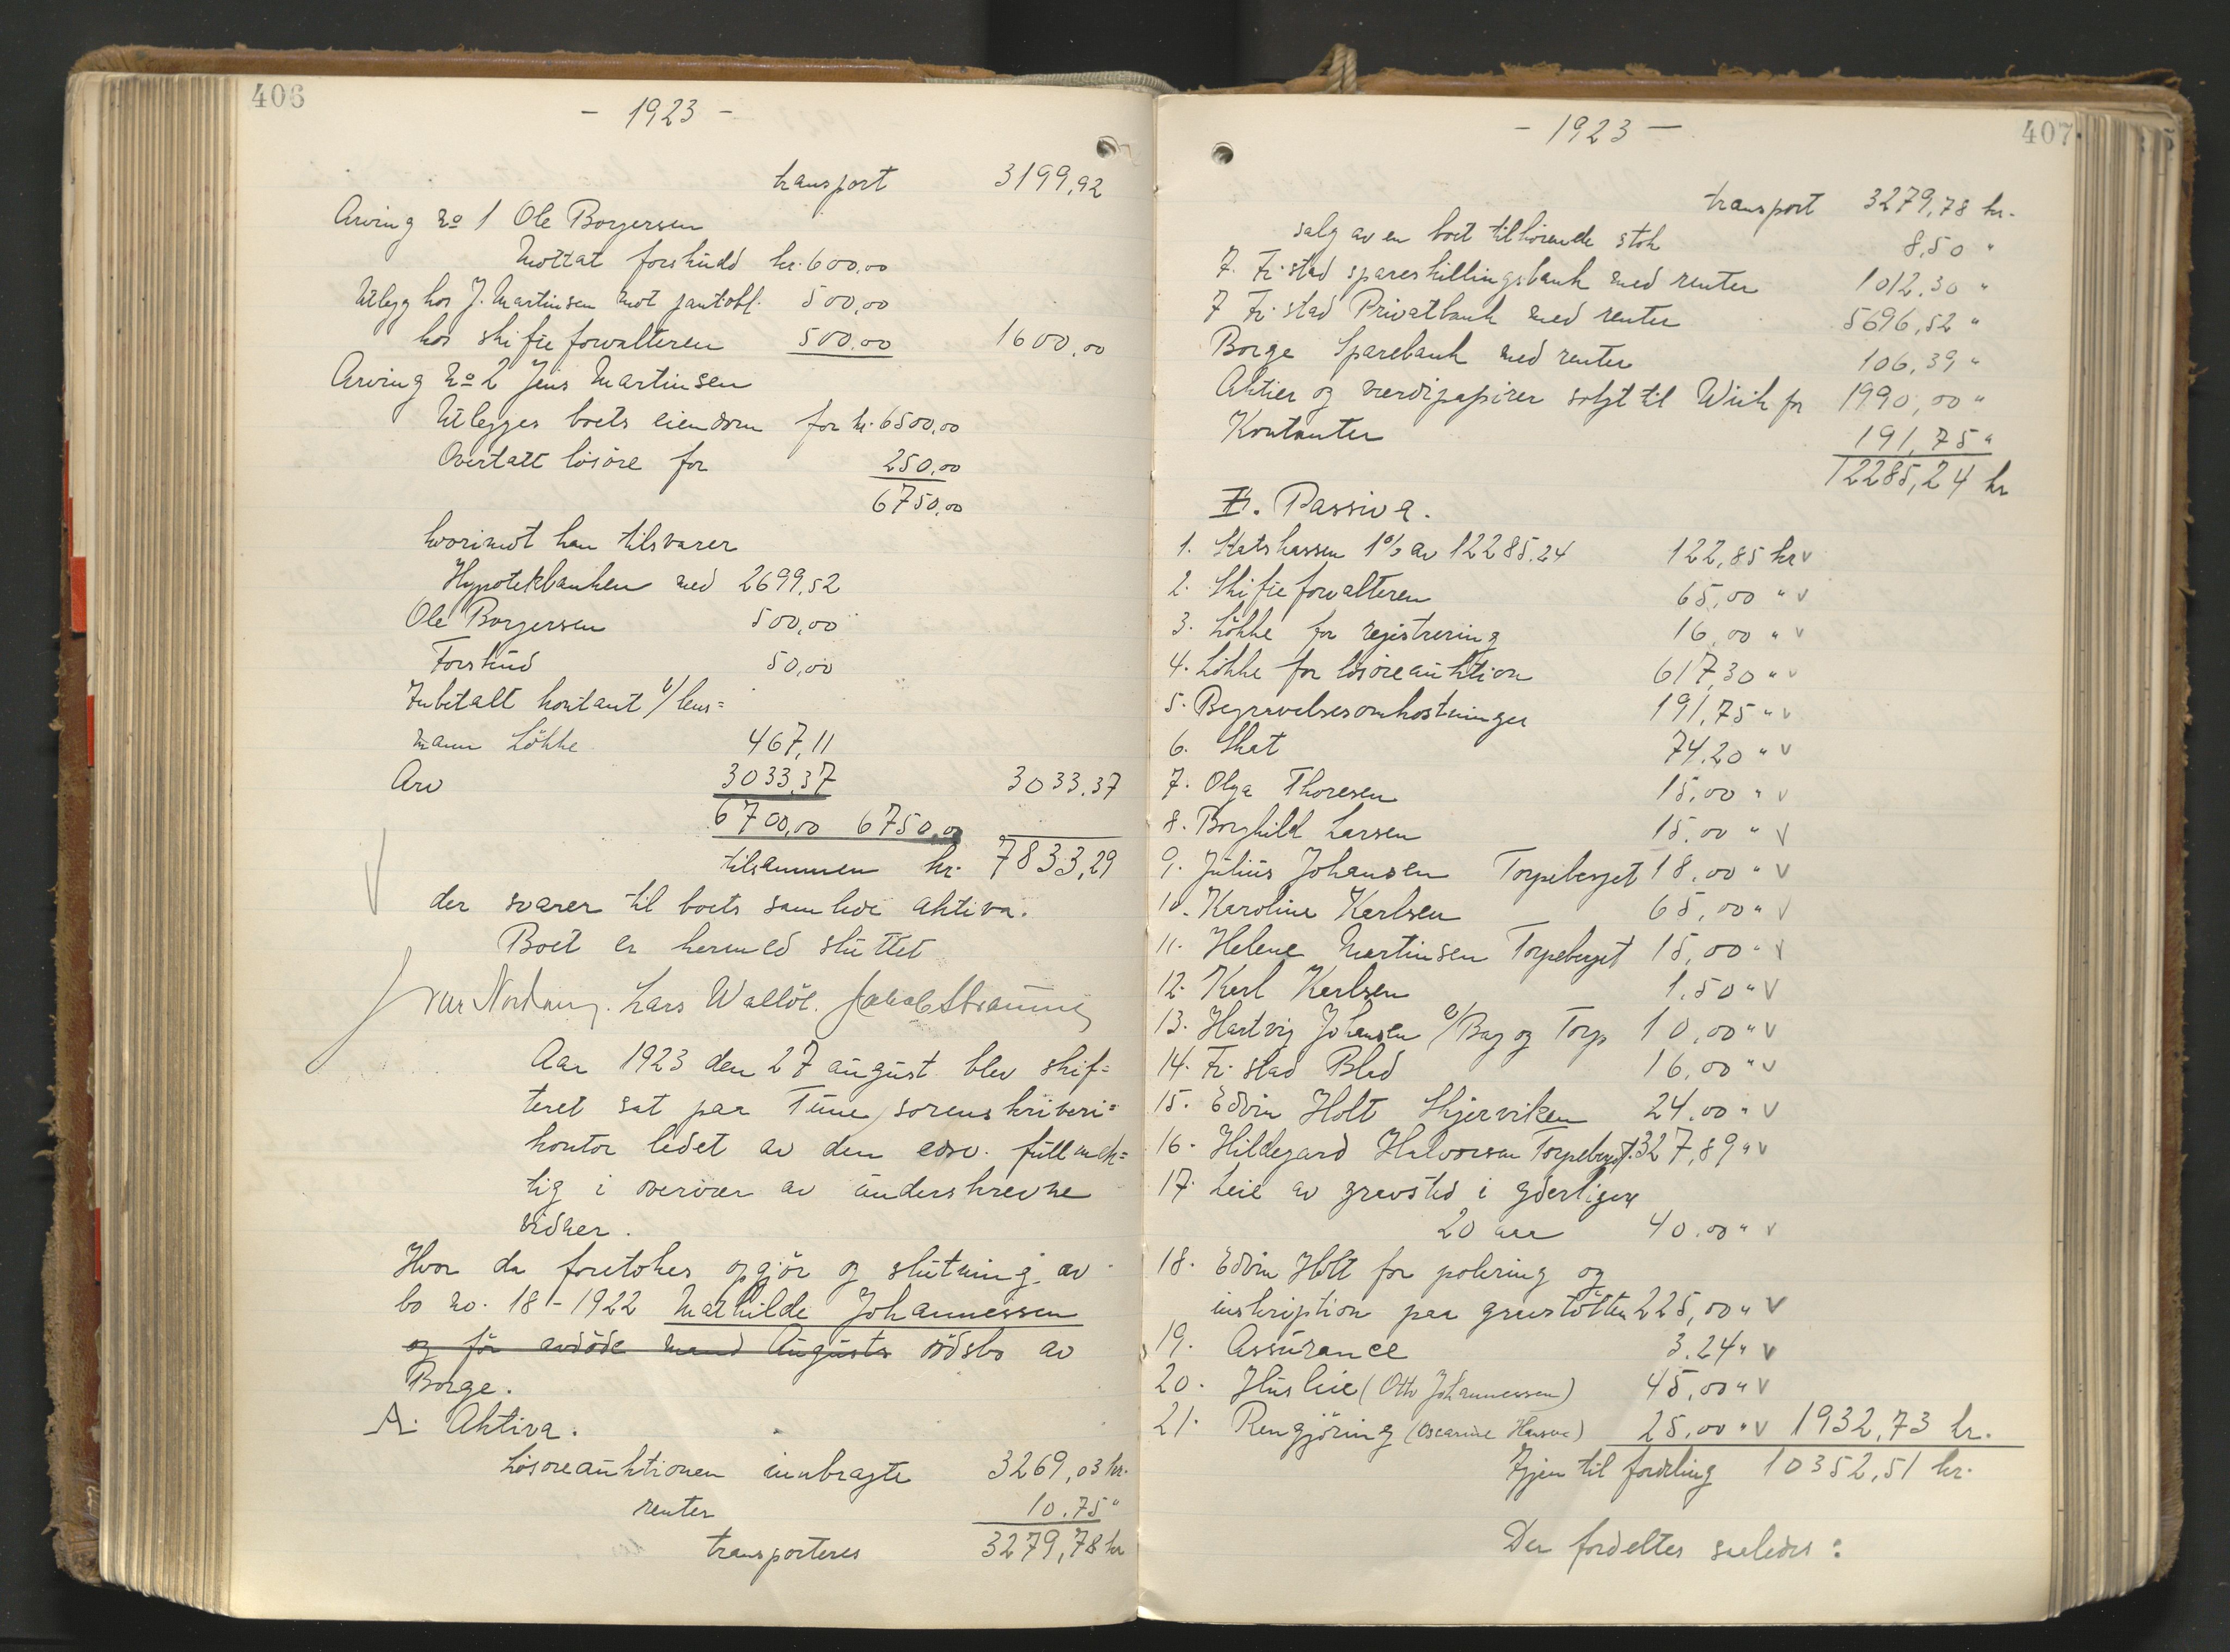 406
- 1923 -
transport 3199,92
Arving no 1 Ole Borgersen
Mottat forskudd kr. 600,00
Utlegg hos J. Martinsen mot pantobl. 500,00
hos skifteforvalteren 500,00 1600,00
Arving no 2 Jens Martinsen
Utlegges boets eiendom for kr. 6500,00
Overtatt lösöre for 250,00
6750,00
hvorimot han tilsvarer
Hypotekbanken med 2699,52
Ole Borgersen 500,00
Forskud 50,00
Inbetalt kontant t/ lens=
mann Løkke 467,11
Arv 3033,37 3033,37
6700,00 6750,00
tilsammen kr. 7833,29
der svarer til boets samlede aktiva.
Boet er hermed sluttet
Lars Walløe.
Aar 1923 den 27 august blev skif=
teret sat paa Tune sorenskriveri=
kontor ledet av den edsv. fullmek=
tig i overvær av underskrevne
vidner.
Hvor da foretokes opgjör og slutning av
bo no. 18 - 1922 Mathilde Johannessen
og før avdöde mand Augusts dödsbo av
Borge.
A. Aktiva.
Lösöreauktionen innbragte 3269,03 kr.
renter 10.75 "
transporteres 3279,78 kr
407
- 1923 -
transport 3279,78 kr.
salg av en boet tilhörende stok 8,50 "
7. Fr.stad spareskillingsbank med renter 1012.30 "
7 Fr.stad Privatbank med renter 5696,52 "
Borge Sparebank med renter 106,39 "
Aktier og værdipapirer solgt til Wiik for 1990,00 "
Kontanter 191,75 "
12285,24 kr
B. Passiva.
1. Statskassen 1% av 12285.24 122,85 kr v
2. Skifteforvalteren 65,00 " v
3. Løkke for registrering 16,00 " v
4. Løkke for lösöreauktion 617,30 " v
5. Begravelsesomkostninger 191,75 " v
6. Skat 74,20 " v
7. Olga Thoresen 15,00 " v
8. Borghild Larsen 15.00 " v
9. Julius Johansen Torpeberget 18.00 " v
10. Karoline Karlsen 65,00 " v
11. Helene Martinsen Torpeberget 15,00 " v
12. Karl Karlsen 1.50 " v
13. Hartvig Johansen c/ Bag og Torp 10,00 " v
14. Fr.stad Blad 16,00 " v
15. Edvin Holt Skjærviken 24.00 " v
16. Hildegard Halvorsen Torpeberget. 327,89 " v
17. Leie av gravsted i yderligere
20 aar 40.00 " v
18. Edvin Holt for polering og
inskription paa gravstøtten 225,00 " v
19. Assurance 3.24 " v
20. Husleie (Otto Johannessen) 45,00 " v
21. Rengjöring (Oscarine Hansen) 25,00 " v 1932,73 kr.
Igjen til fordeling 10352,51 kr.
Der fordeltes saaledes: